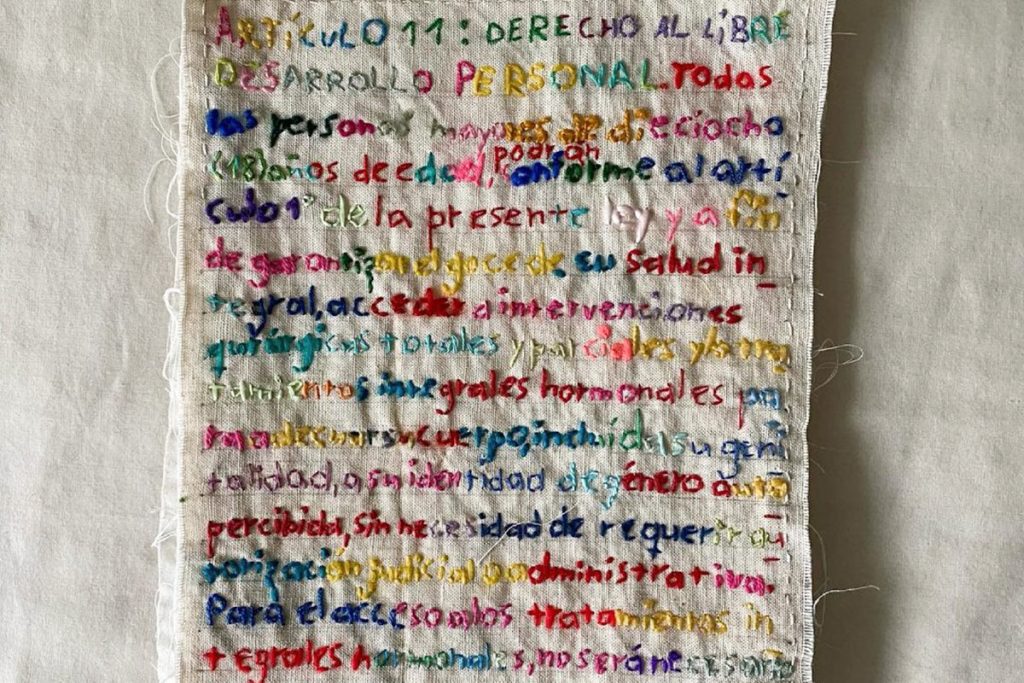 ARTÍCULO 11: DERECHO AL LIBRE
DESARROLLO PERSONAL. Todas
las personas mayores de dieciocho
podrán
(18) años de edad, conforme al artí
culo 1° de la presente ley y a fin
de garantizar el goce de su salud in
tegral, acceder a intervenciones
quirúrgicas totales y parciales y/o tra
tamientos integrales hormonales pa
ra adecuar su cuerpo, incluida su geni
talidad, a su identidad de género auto
percibida, sin necesidad de requerir au
torización judicial o administrativa.
Para el acceso a los tratamientos in
tegrales hormonales, no será necesario